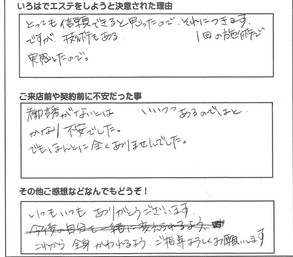 いろはでエステをしようと決意された理由
とっても信頼できると思ったので、それにつきます。
ですが、技術もある 1回の施術で
実感したので。
ご来店前や契約前に不安だった事
勧誘がないとは いいつつ あるのではと
かなり不安でした。
でもほんとに全くありませんでした。
その他ご感想などなんでもどうぞ！
いつもいつも ありがとうございます。
今後の自分も一緒に変えられるよう、
これから 全身 かわれるよう ご指導よろしくお願いします